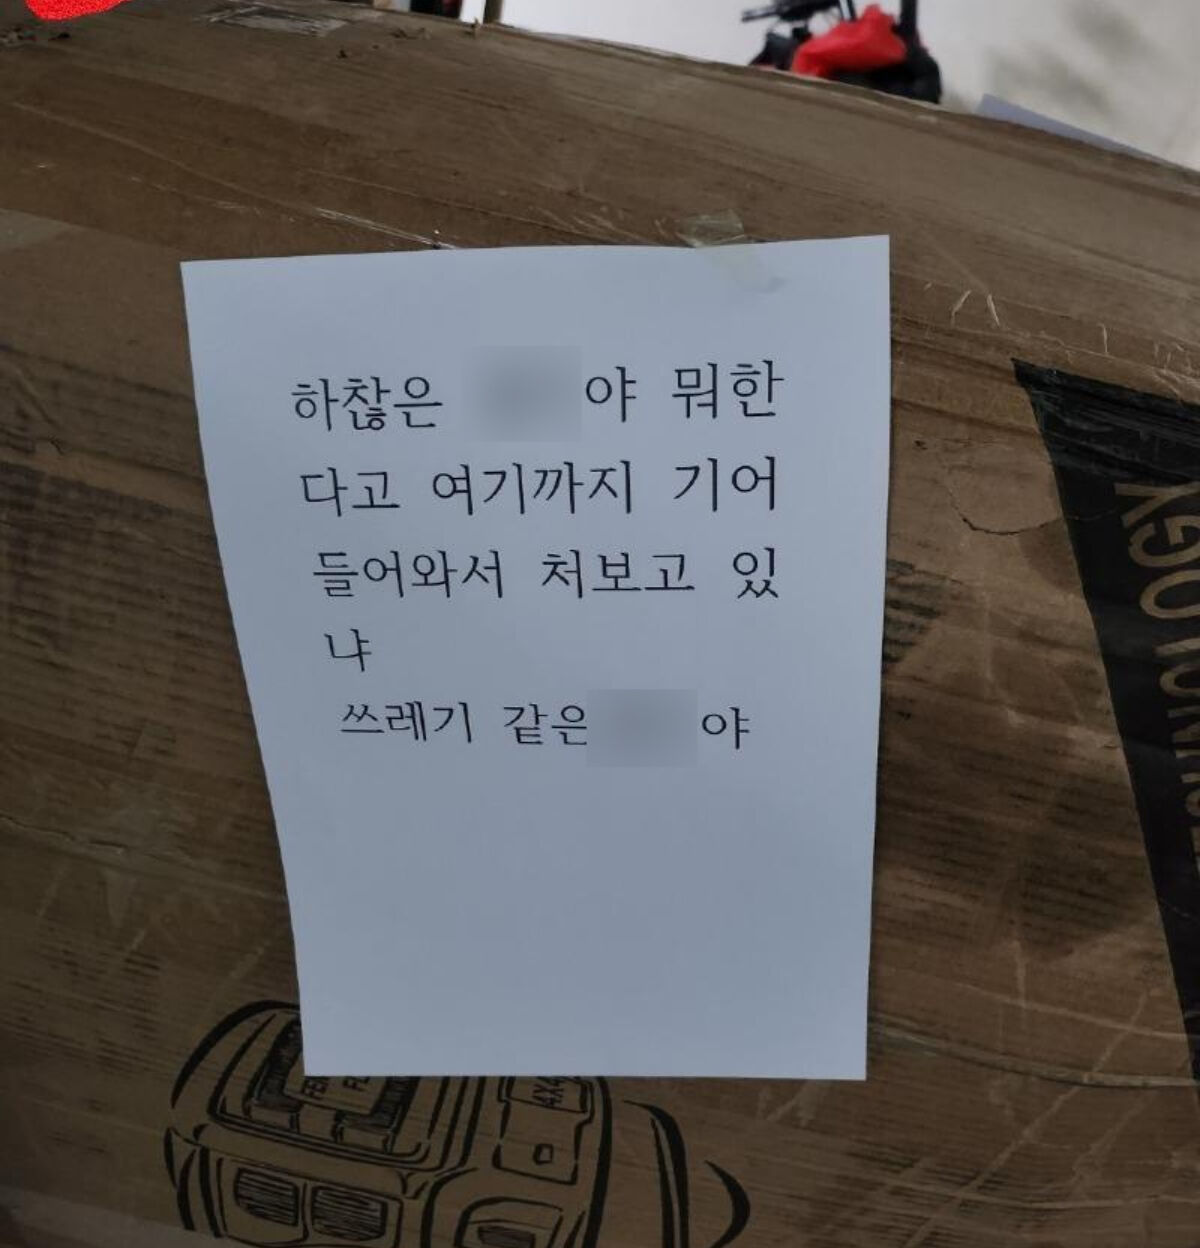 하찮은 야 뭐한
다고 여기까지 기어
들어와서 처보고 있
냐
쓰레기 같은 야
4X4